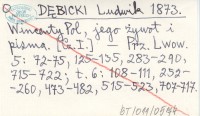 DĘBICKI Ludwik 1873.
Wincenty Pol, jego żywot i
pisma. [Cz. I.] — Prz. Lwow.
5: 72-75, 125-135, 283-290,
715-722; t. 6: 108-111, 252-
-260, 473-482, 515-523, 707-717.
BT/011/0544